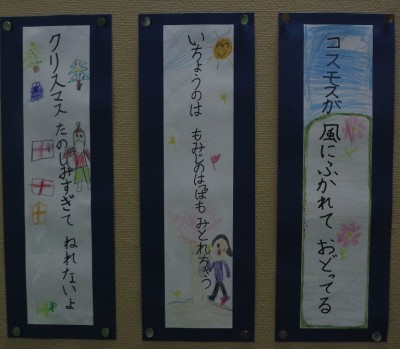 コスモスが 風にふかれて おどってる
いちょうのは もみじのはっぱも みとれちゃう
クリスマス たのしみすぎて ねれないよ